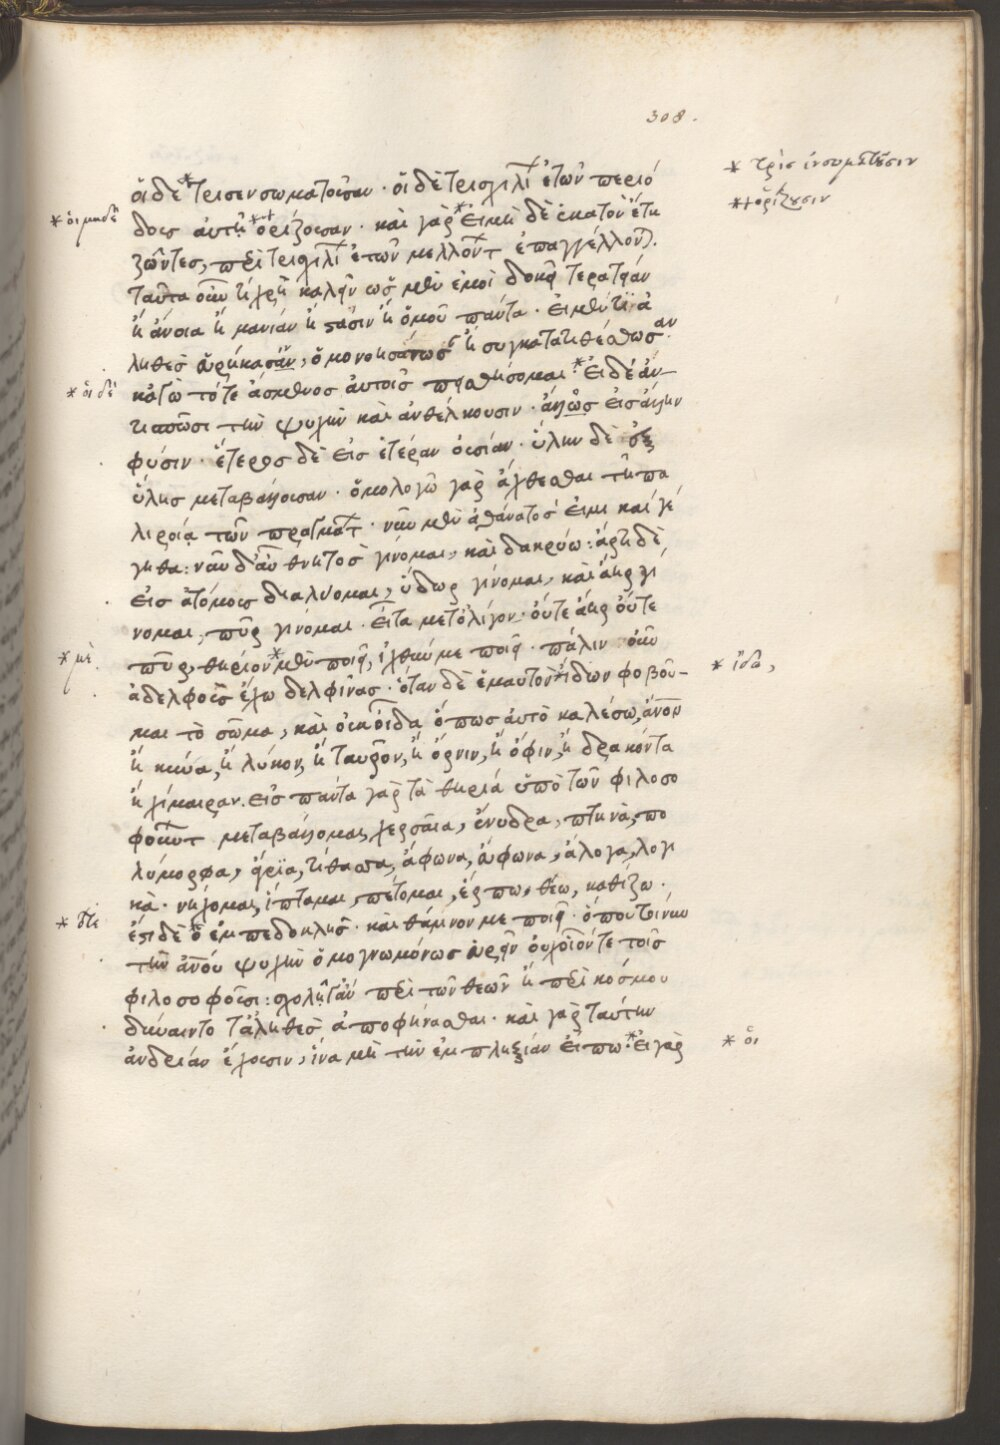 308.
οἱ δὲ *τρισενσωματοῦσαν· οἱ δὲ τρισχιλί ἐτῶν περιό
* τρὶς ἐνσωματοῦσιν
* οἱ μηδὲ
δους αὐτῇ *+ὁρίζουσαν· καὶ γὰρ *εἰ μὴ δὲ ἑκατὸν ἔτη
*+ ὁρίζουσιν
ζῶντες, περὶ τρισχιλί ἐτῶν μελλόντ ἐπαγγέλλον).
ταῦτα οὖν τί χρὴ καλεῖν ὡς μὲν ἐμοὶ δοκεῖ τερατείαν
ἢ ἄνοια ἢ μανίαν ἢ στάσιν ἢ ὁμοῦ πάντα· εἰ μέν τι ἀ
ληθὲς εὑρήκασᾶν, ὁμονοησάτωσ ἢ συγκατατιθέσθωσαν
* οἱ δέ
κἀγὼ τότε ἄσμενος αὐτοῖς πεισθήσομαι *Εἰ δέ ἀν-
τιασπῶσι τὴν ψυχὴν καὶ ἀνθέλκουσιν· ἄλλως εἰς ἄλλην
φύσιν· ἕτερος δὲ εἰς ἑτέραν οὐσίαν· ὕλην δὲ ἐξ
ὕλης μεταβάλλουσαν· ὁμολογῶ γὰρ ἄχθεσθαι τῇ πα
λιρροίᾳ τῶν πραγμάτ· νῦν μὲν ἀθάνατός εἰμι καὶ γέ
γηθα: νῦν δ' αὖ θνητὸς γίνομαι, καὶ δακρύω: ἄρτι δὲ
εἰς ἀτόμους διαλύομαι, ὕδωρ γίνομαι, καὶ ἀὴρ γί
νομαι, πῦρ γίνομαι· εἶτα μετ' ὀλίγον· οὔτε ἀὴρ οὔτε
* μὲ
πῦρ, θηρίον *μὲν ποιεῖ, ἰχθύν με ποιεῖ· πάλιν οὖν
ἀδελφοὺς ἔχω δελφῖνας· ὅταν δὲ ἐμαυτὸν *εἴδων φοβοῦ-
* ἴδω,
μαι τὸ σῶμα, καὶ οὐκ οἶδα ὅπως αὐτὸ καλέσω, ἄνον
ἢ κύνα, ἢ λύκον, ἢ ταῦρον, ἢ ὄρνιν, ἢ ὄφιν, ἢ δράκοντα
ἢ χίμαιραν. εἰς πάντα γὰρ τὰ θηρία ὑπὸ τῶν φιλοσο
φούντ μεταβάλλομαι, χερσαῖα, ἔνυδρα, πτηνὰ, πο
λύμορφα, ἄγρια, τίθασσα, ἄφωνα, εὔφωνα, ἄλογα, λογι
κὰ· νήχομαι, ἵπταμαι, πέτομαι, ἕρπω, θέω, καθίζω·
* ὅτε
ἔστι δὲ *ὁ ἐμπεδοκλῆς· καὶ θάμνον με ποιεῖ· ὅπου τοίνυν
τὴν ἀνου ψυχὴν ὁμογνωμόνως εὑρεῖν οὐχ οἷόν τε τοῖς
φιλοσοφοῦσι: σχολῇ τ' ἂν περὶ τῶν θεῶν ἢ περὶ κόσμου
δύναιντο τἀληθὲς ἀποφήνασθαι· καὶ γὰρ ταύτην
ἀνδρείαν ἔχουσιν, ἵνα μὴ τὴν ἐμπληξίαν εἴπω· *εἰ γὰρ
* οἱ